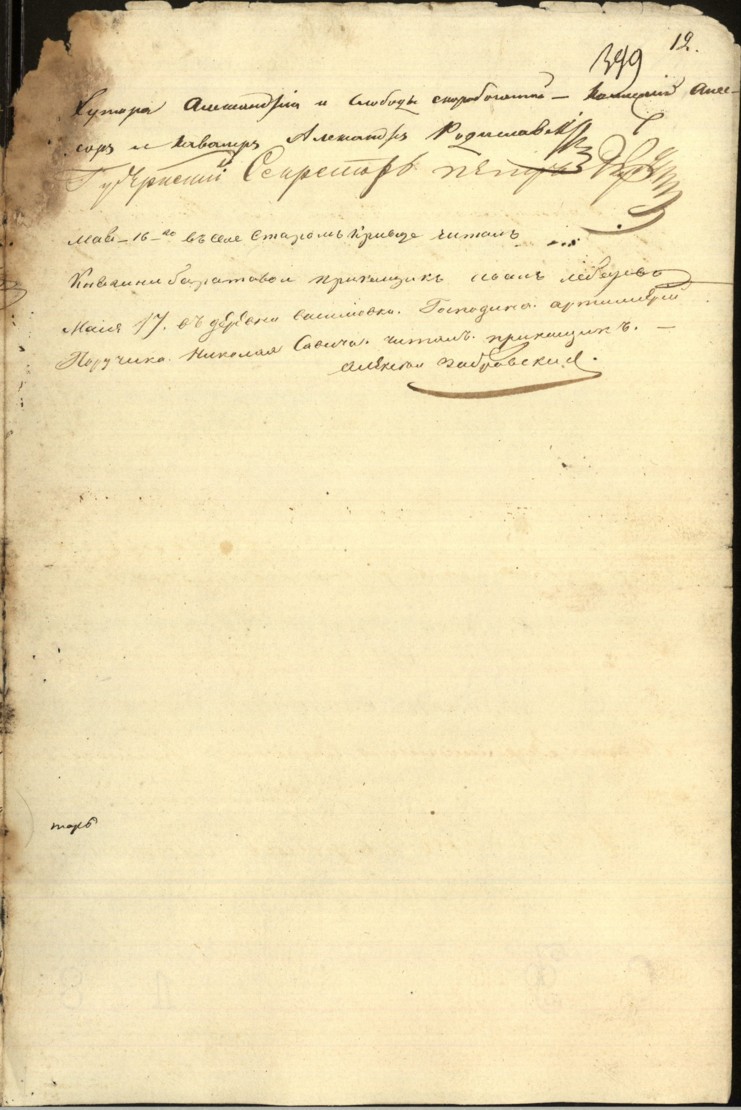 12.
349
Хутора Александрія и слободы скоробогатой – Колежскій Асес-
соръ и Кавалеръ Александръ Родиславскій
Губернскій Секретарь петръ
мая – 16-го въ селе Старомъ Кривце читалъ
Княгини баратавои прикащикъ иванъ лебедевъ
Маия 17. въ деревни василовки. Господина артиллерій
Поручика Николая Савича. читалъ прикащикъ. –
алексей